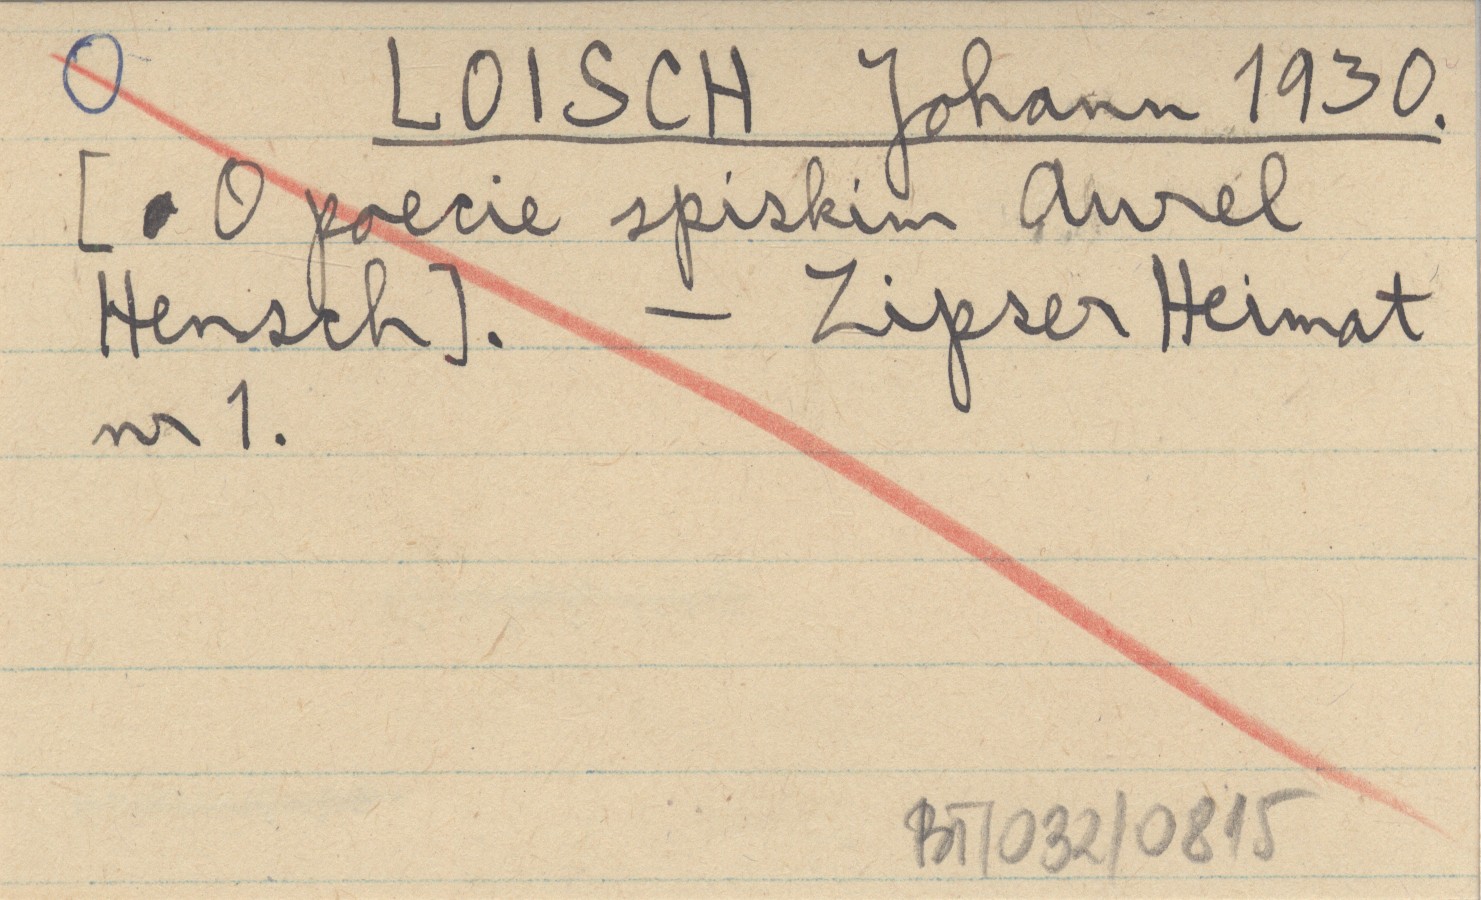 O LOISCH Johann 1930.
[O poecie spiskim Aurel
Hensch]. — Zipser Heimat
nr 1.
BT/032/0815